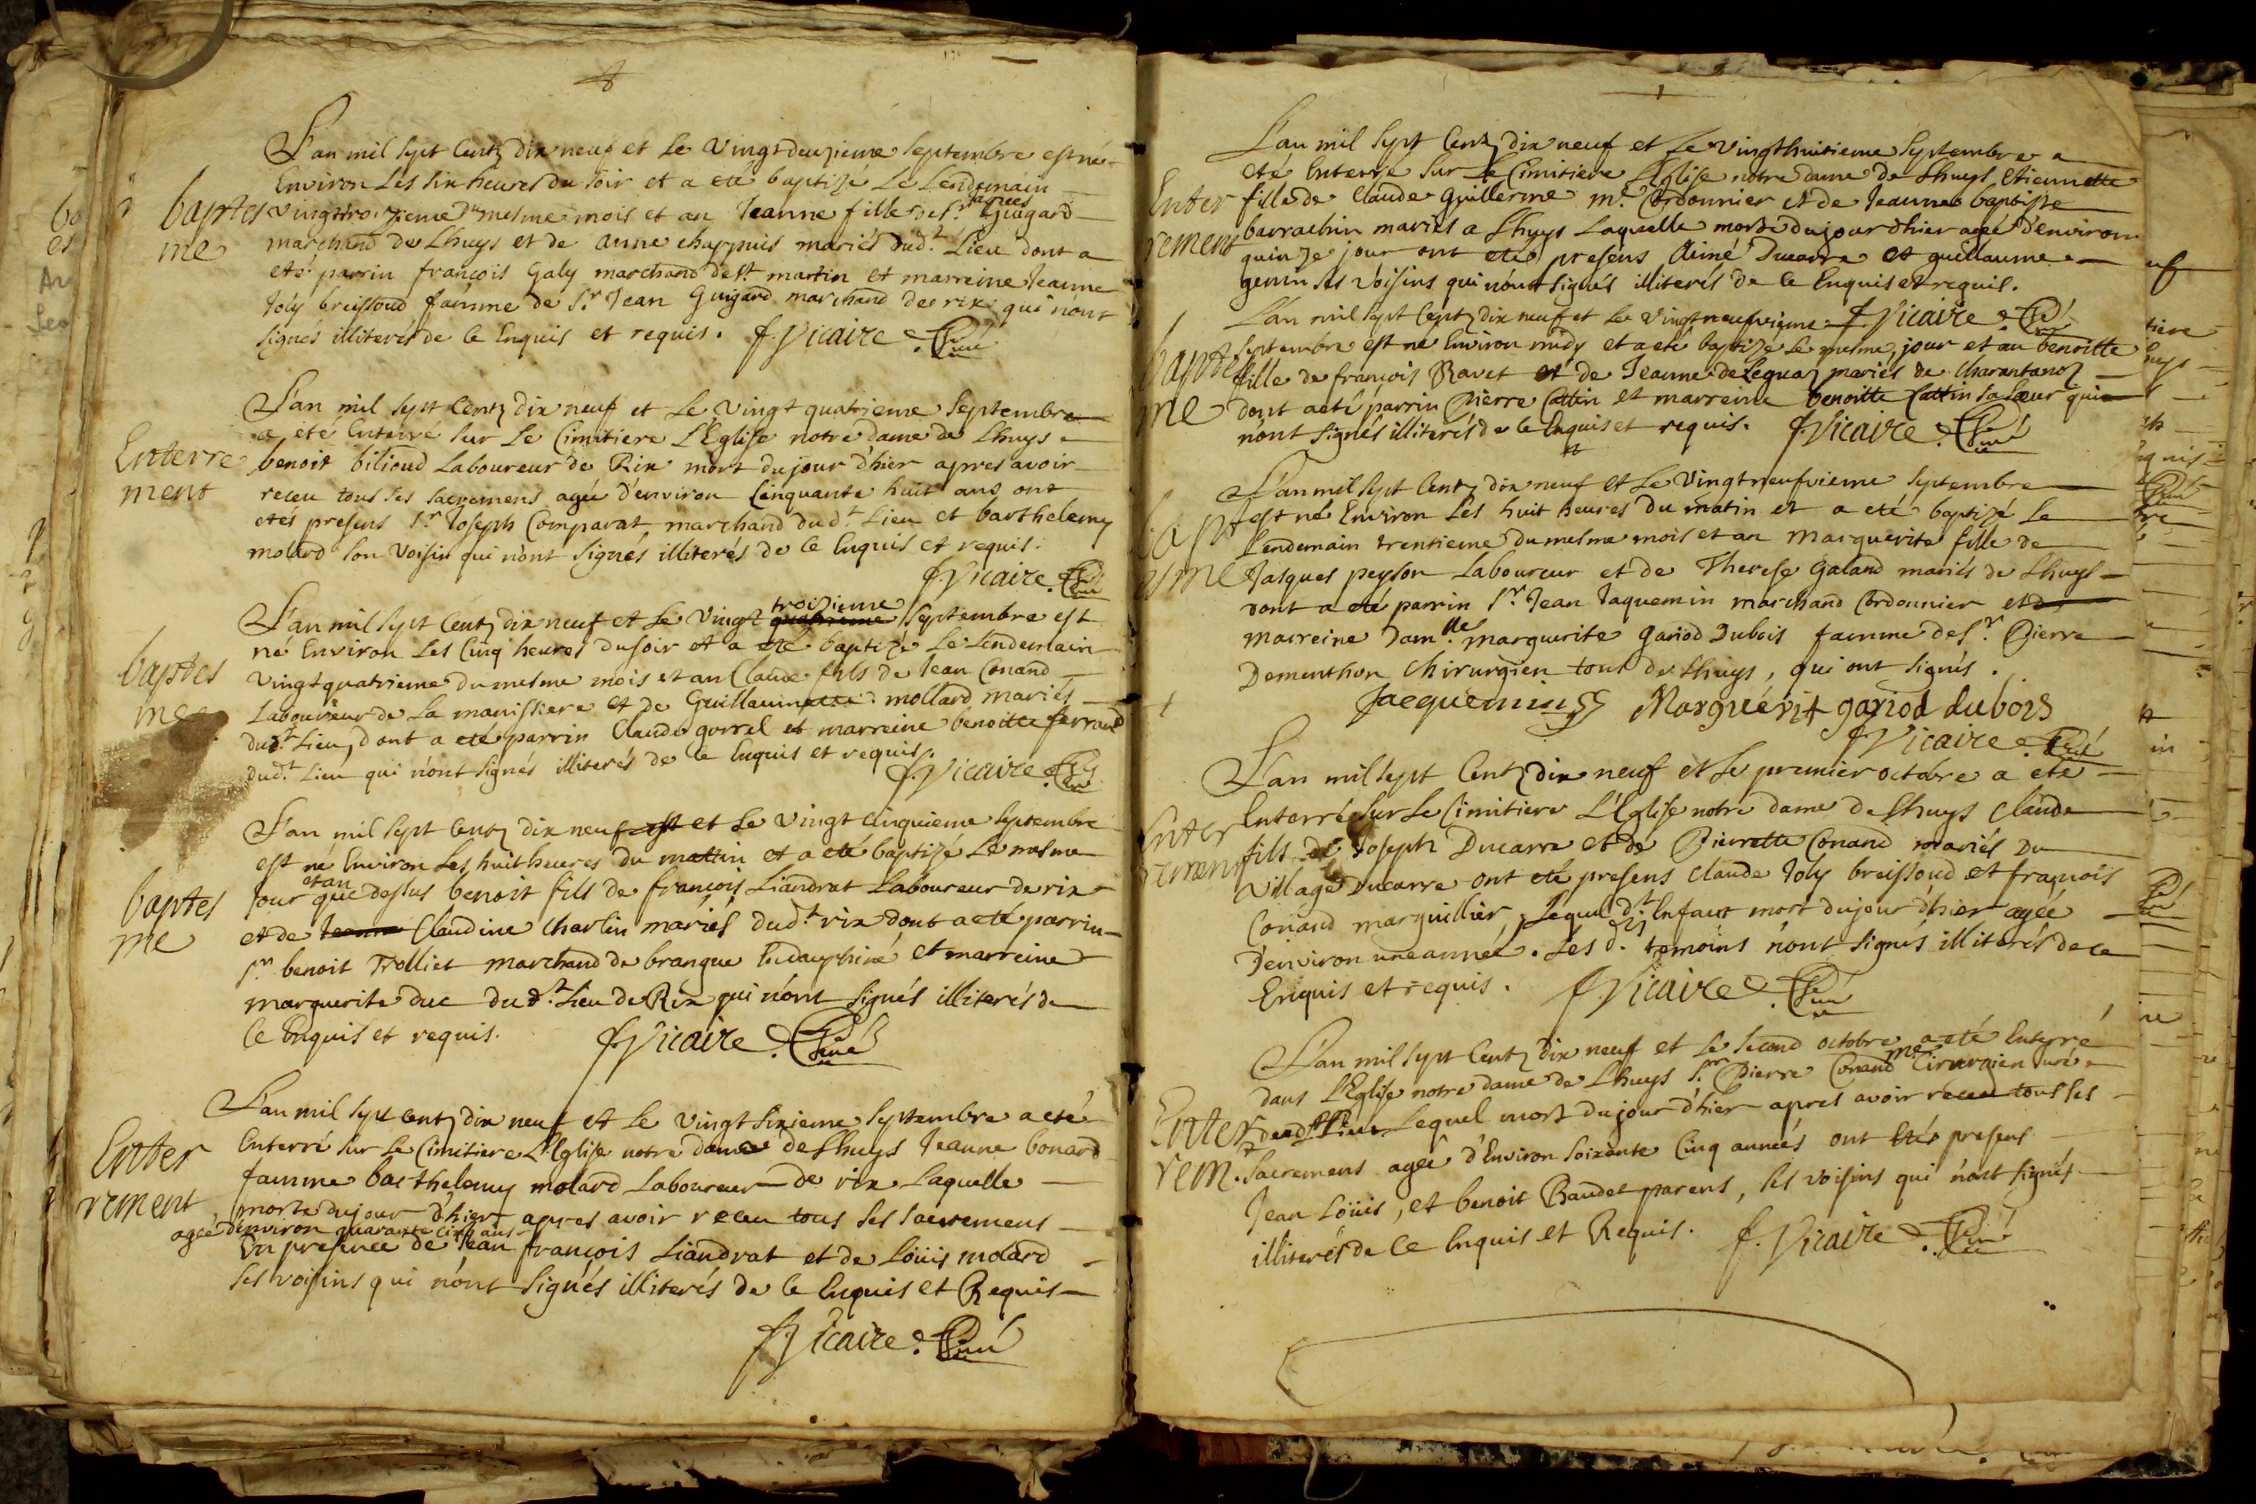 L'an mil sept Cents dix neuf et Le vingt deuzieme septembre est né
Environ Les six heures du soir et a eté baptizé Le Lendemain
baptes
me
vingt troizieme du mesme mois et an Jeanne fille de Sr Guigard
marchand de Lhuys et de anne chappuis mariés dud.t Lieu dont a
eté parrin françois Galy marchand de St martin et marreine Jeanne
Joly breissoud famme de Sr Jean Guigard marchand de rix qui n'ont
signés illiterés de Ce Enquis et requis. f. Vicaire Curé
L'an mil sept Cents dix neuf et Le vingt quatrieme septembre
a eté Enterré sur Le Cimitiere L'Eglise notre dame de Lhuys
Enterre
ment
benoit bilioud Laboureur de Rix mort du jour d'hier apres avoir
receu tous ses sacremens agée d'environ Cinquante huit ans ont
etés presens Sr Joseph Comparat marchand dud.t Lieu et barthelemy
molard son voisin qui n'ont signés illiterés de Ce Enquis et requis.
f. Vicaire Curé
L'an mil sept Cents dix neuf et Le vingt quatrieme troizieme septembre est
né Environ Les Cinq heures du soir et a eté baptizé Le Lendemain
baptes
me
vingt quatrieme du mesme mois et an Claude fils de Jean Conand
Laboureur de La manissiere et de Guillaumette mollard mariés
dud.t Lieu, dont a eté parrin Claude gorrel et marreine benoitte ferrand
dud.t Lieu qui n'ont signés illiterés de Ce Enquis et requis.
f. Vicaire Curé
L'an mil sept Cents dix neuf est et Le vingt Cinquieme septembre
est né Environ Les huit heures du mattin et a eté baptizé Le mesme
baptes
me
jour et an que dessus benoit fils de françois Liandrat Laboureur de rix
et de Jeanne Claudine Charlin mariés dud.t rix dont a eté parrin
Sr benoit Trolliet marchand de brangue En dauphiné et marreine
marguerite duc dud.t Lieu de Rix qui n'ont signés illiterés de
Ce Enquis et requis. f. Vicaire Curé
L'an mil sept cents dix neuf et Le vingt sixieme septembre a eté
Enterré sur Le Cimitiere L'Eglise notre dame de Lhuys Jeanne bonard
Enter
rement
famme barthelemy molard Laboureur de rix Laquelle
morte du jour d'hier apres avoir receu tous ses sacremens
agée d'environ quarante cinq ans
En presence de Jean françois Liandrat et de Loüis molard
ses voisins qui n'ont signés illiterés de Ce Enquis et Requis
f. Vicaire Curé
L'an mil sept Cents dix neuf et Le vingt huitieme septembre a
eté Enterré sur Le Cimitiere L'Eglise notre dame de Lhuys Etiennette
Enter
rement
fille de Claude Guillerme m.e Cordonnier et de Jeanne baptiste
barrachin mariés a Lhuys Laquelle morte du jour d'hier agée d'environ
quinze jour ont etés presens Aimé Ducarre et guillaume
genin ses voisins qui n'ont signés illiterés de Ce Enquis et requis.
f. Vicaire Curé
L'an mil sept Cents dix neuf et Le vingt neufvieme
baptes
me
septembre est né Environ midy et a eté baptizé Le mesme jour et an benoitte
fille de françois Ravet et de Jeanne de Lequaz mariés de Charantanoz
dont a eté parrin Pierre Cattin et marreine benoitte Cattin sa sœur qui
n'ont signés illiterés de Ce Enquis et requis. f. Vicaire Curé
L'an mil sept Cents dix neuf et Le vingt neufvieme septembre
bapt
esme
est né Environ Les huit heures du matin et a eté baptizé Le
Lendemain trentieme du mesme mois et an marguerite fille de
Jasques peyson Laboureur et de Therese Galand mariés de Lhuys
dont a eté parrin Sr Jean Jaquemin marchand Cordonnier et de
marreine dam.lle marguerite gariod Dubois famme de Sr Pierre
Dementhon Chirurgien tout de Lhuys, qui ont signés.
Jacquemin Marguérit gariod dubois
f. Vicaire Curé
L'an mil sept Cents dix neuf et Le premier octobre a eté
Enterré sur Le Cimitiere L'Eglise notre dame de Lhuys Claude
Enter
rement
fils de Joseph Ducarre et de Pierrette Conand mariés du
village Ducarre ont eté presens Claude Joly breissoud et françois
Conand marguillier, Lequel d.t Enfant mort du jour d'hier agée
D'environ une année. Les d.ts temoins n'ont signés illiterés de Ce
Enquis et requis. f. Vicaire Curé
L'an mil sept Cents dix neuf et Le second octobre a eté Enterré
dans L'Eglise notre dame de Lhuys Sr Pierre Conand me Cirurgien Juré
Enter
rem.t
dud.t Lieu Lequel mort du jour d'hier apres avoir receu tous ses
sacremens agée d'Environ soixante Cinq années ont etés presens
Jean Loüis, et benoit Baudet parens, ses voisins qui n'ont signés
illiterés de Ce Enquis et Requis. f. Vicaire Curé